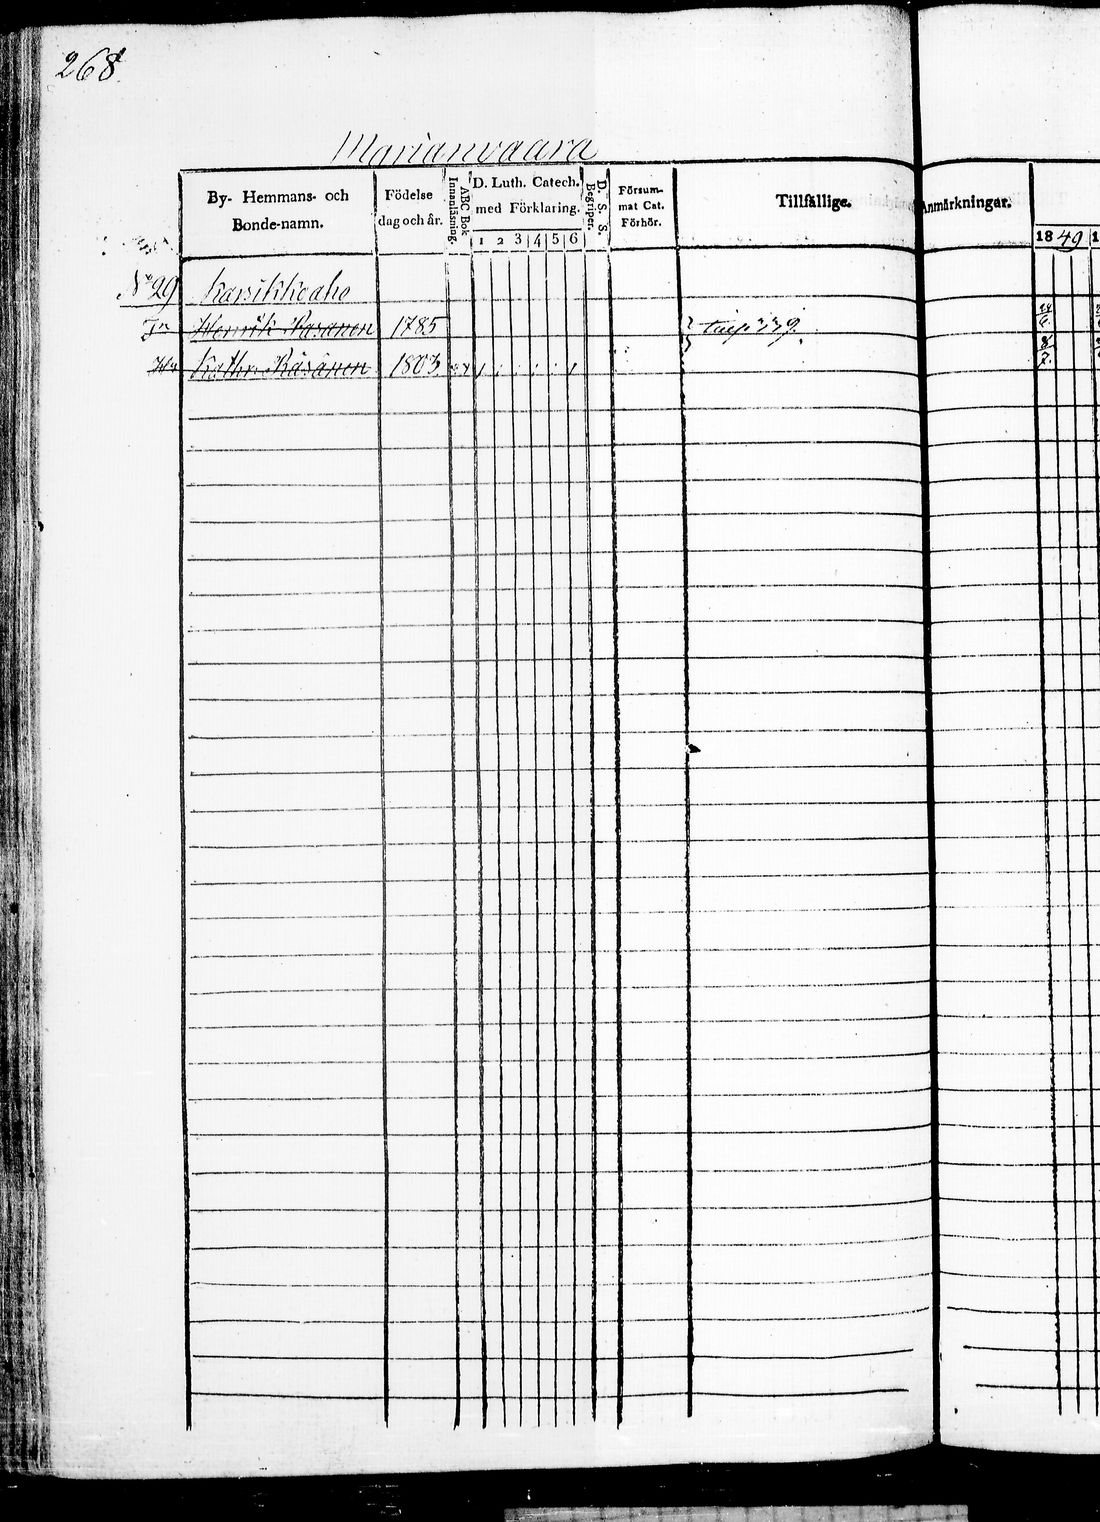 268
Marianvaara
By- Hemmans- och Bonde-namn. Födelse dag och år. ABC Bok Innanläsning. D. Luth. Catech. med Förklaring. 1 2 3 4 5 6 D. S. S. Begriper. Försum- mat Cat. Förhör. Tillfällige. Anmärkningar. 1849
No 29 Karsikkoaho
Henrik Räsänen 1785
Kathr. Räsänen 1803